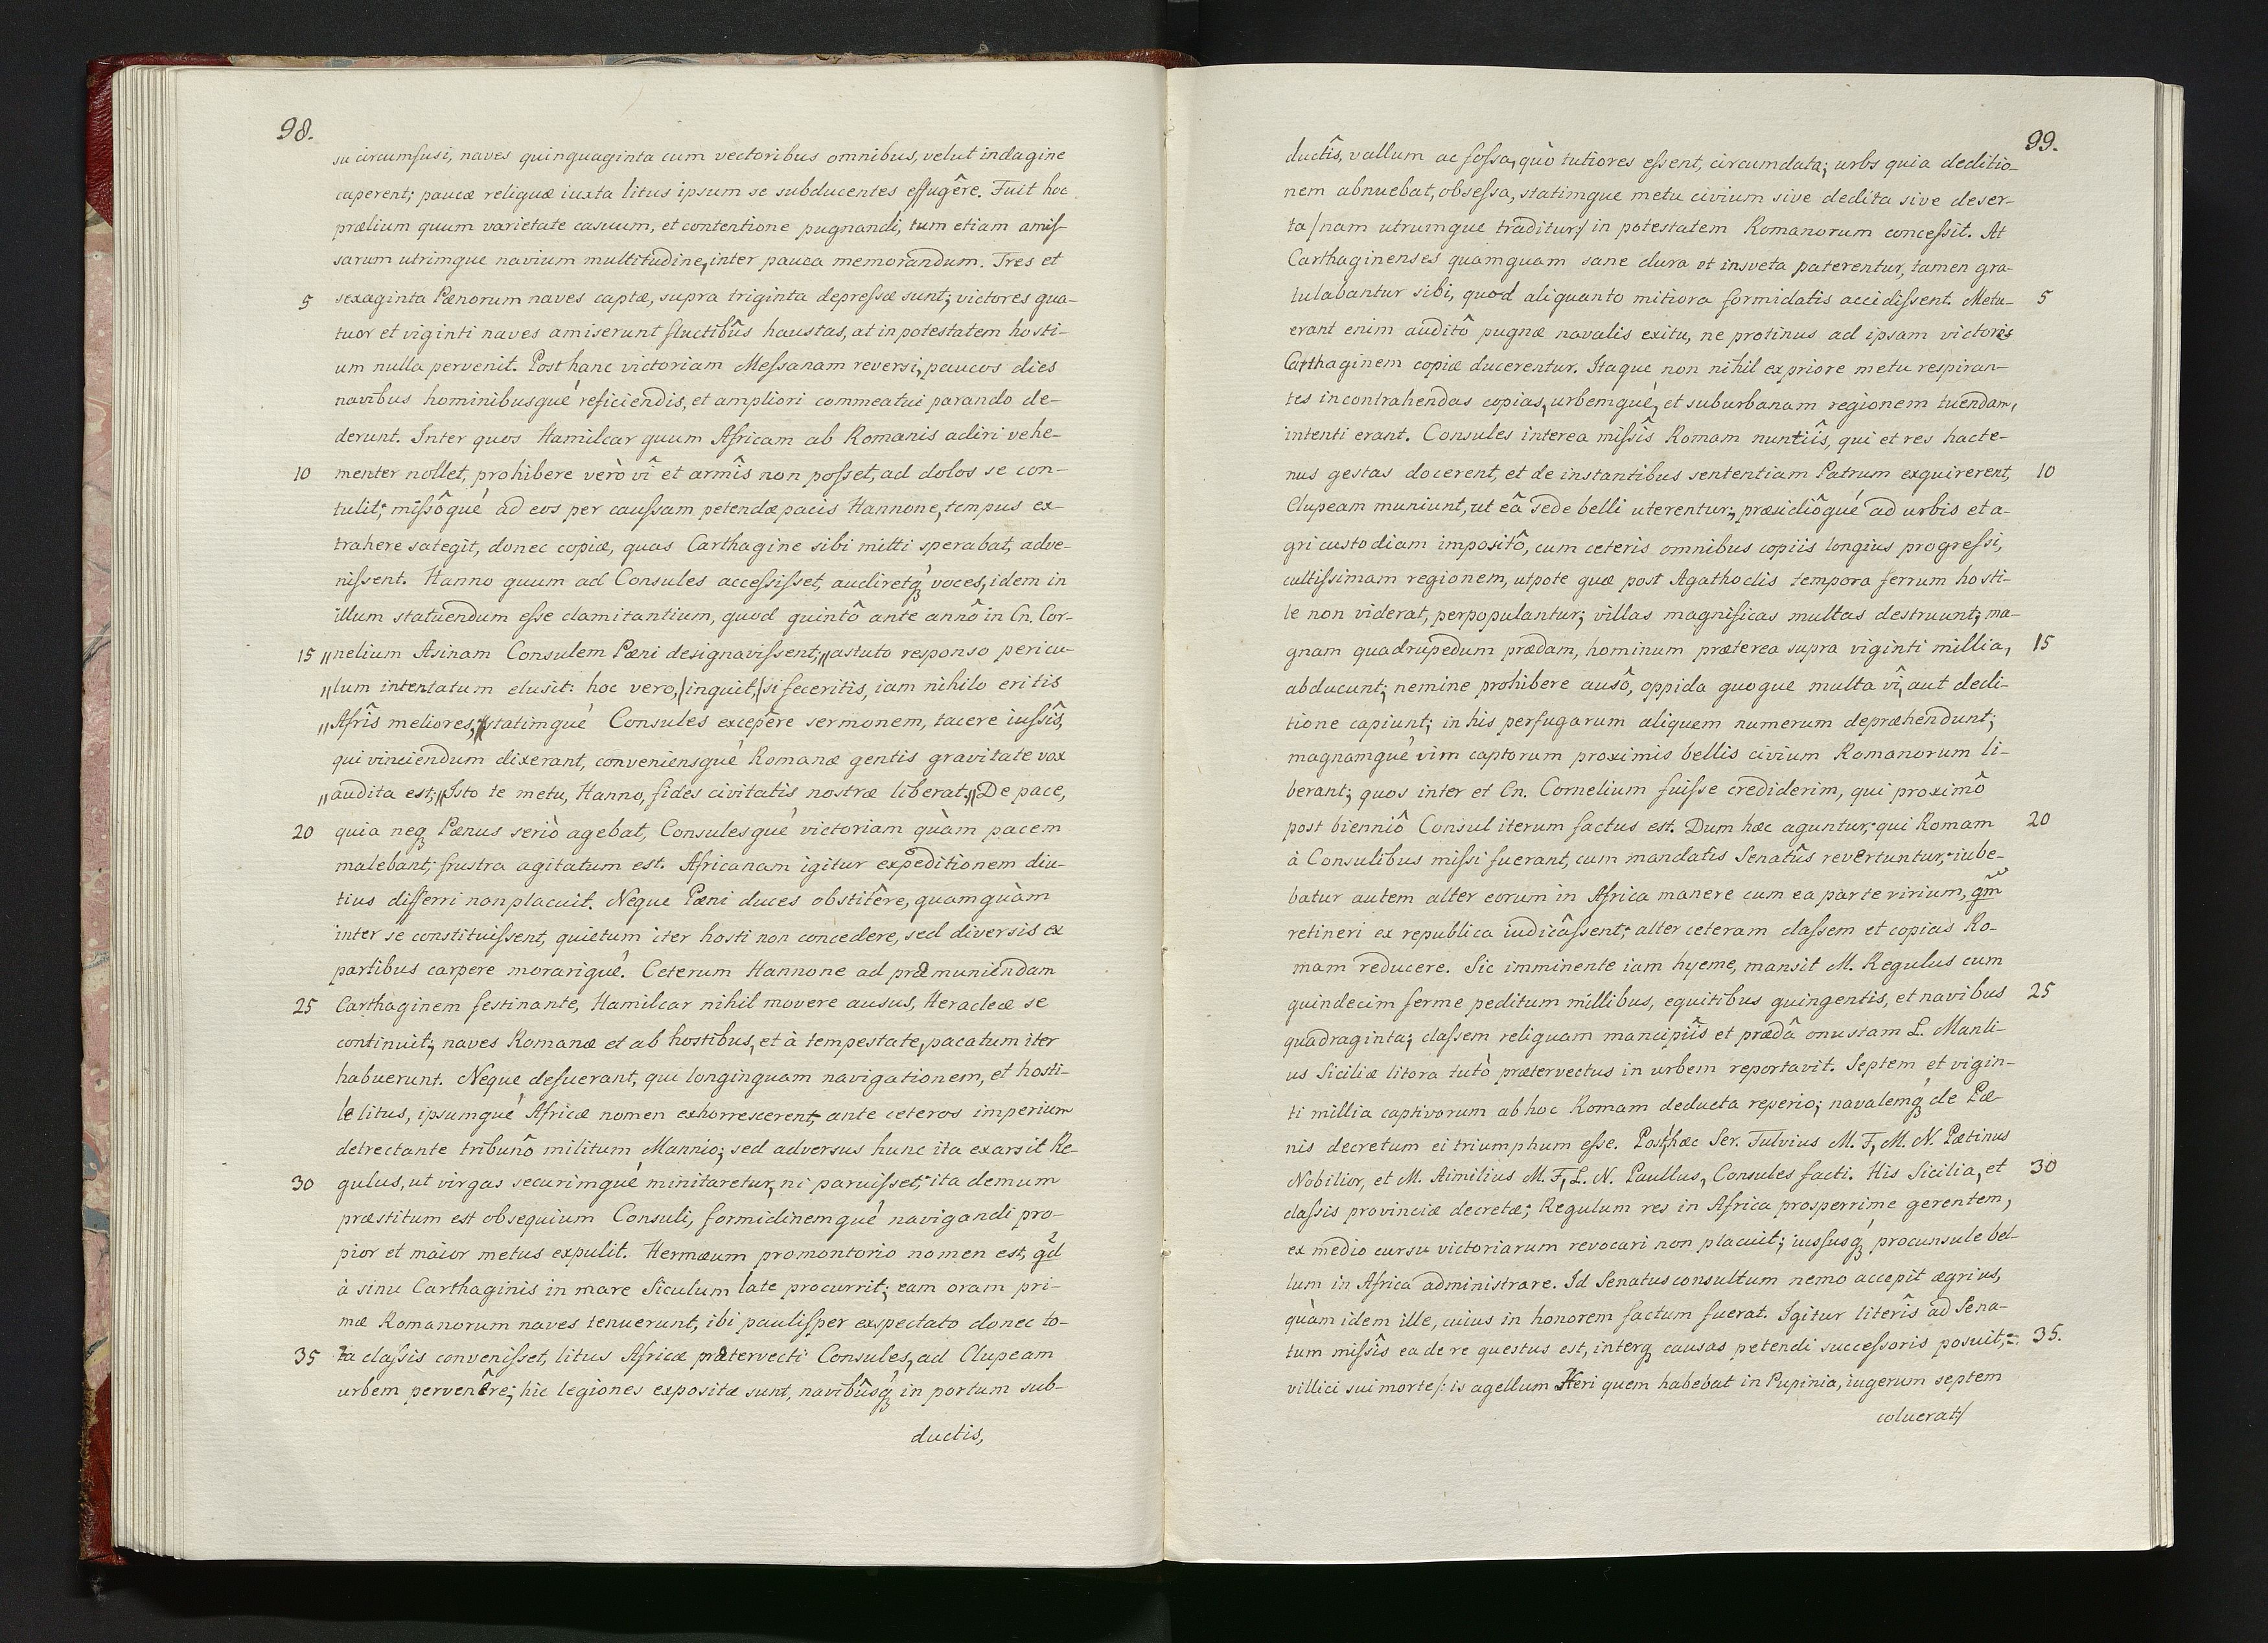 98.
su circumfusi, naves quinquaginta cum vectoribus omnibus, velut indagine
caperent; paucæ reliquæ iuxta litus ipsum se subducentes effugêre. Fuit hoc
prælium quum varietate casuum, et contentione pugnandi, tum etiam amis-
sarum utrimque navium multitudine, inter pauca memorandum. Tres et
5 sexaginta Pænorum naves captæ, supra triginta depressæ sunt; victores qua-
tuor et viginti naves amiserunt fluctibûs haustas, at in potestatem hosti-
um nulla pervenit. Post hanc victoriam Messanam reversi, paucos dies
navibus hominibusqué reficiendis, et ampliori commeatui parando de-
derunt. Inter quos Hamilcar quum Africam ab Romanis adiri vehe-
10 menter nollet, prohibere verò vî et armîs non posset, ad dolos se con-
tulit; missôqué ad eos per caussam petendæ pacis Hannone, tempus ex-
trahere sategit, donec copiæ, quas Carthagine sibi mitti sperabat, adve-
nissent. Hanno quum ad Consules accessisset, audiretq́ꝫ voces, idem in
illum statuendum esse clamitantium, quod quintô ante annô in Cn. Cor-
15 „nelium Asinam Consulem Pæni designavissent;„ astuto responso pericu-
„lum intentatum elusit: hoc vero, /inquit,/ si feceritis, iam nihilo eritis
„Afrîs meliores;„ statimqué Consules excepêre sermonem, tacere iussîs,
qui vinciendum dixerant, conveniensqué Romanæ gentis gravitate vox
„audita est;„ Isto te metu, Hanno, fides civitatis nostræ liberat.„ De pace,
20 quia neqꝫ Pænus seriò agebat, Consulesqué victoriam quàm pacem
malebant; frustra agitatum est. Africanam igitur expeditionem diu-
tius differri non placuit. Neque Pæni duces obstitêre, quamquàm
inter se constituissent, quietum iter hosti non concedere, sed diversis ex
partibus carpere morariqué. Ceterum Hannone ad præmuniendam
25 Carthaginem festinante, Hamilcar nihil movere ausus, Heracleæ se
continuit; naves Romanæ et ab hostibus, et à tempestate, pacatum iter
habuerunt. Neque defuerant, qui longinquam navigationem, et hosti-
le litus, ipsumqué Africæ nomen exhorrescerent, ante ceteros imperium
detrectante tribunô militum Mannio; sed adversus hunc ita exarsit Re-
30 gulus, ut virgas securimqué minitaretur, ni paruisset; ita demum
præstitum est obsequium Consuli, formidinemqué navigandi pro-
pior et maior metus expulit. Hermæum promontorio nomen est, qd
à sinu Carthaginis in mare Siculum late procurrit; eam oram pri-
mæ Romanorum naves tenuerunt, ibi paulisper expectato donec to-
35 ta classis convenisset, litus Africæ prætervecti Consules, ad Clupeam
urbem pervenêre; hic legiones expositæ sunt, navibûsq́ꝫ in portum sub-
ductis,
99.
ductîs, vallum ac fossa, quò tutiores essent, circumdata; urbs quia deditio-
nem abnuebat, obsessa, statimque metu civium sive dedita sive deser-
ta /nam utrumque traditur/ in potestatem Romanorum concessit. At
Carthaginenses quamquam sane dura et insveta paterentur, tamen gra-
tulabantur sibi, quod aliquanto mitiora formidatis accidissent. Metu- 5
erant enim auditô pugnæ navalis exitu, ne protinus ad ipsam victoris
Carthaginem copiæ ducerentur. Itaque non nihil ex priore metu respiran-
tes in contrahendas copias, urbemqué, et suburbanam regionem tuendam,
intenti erant. Consules interea missîs Romam nuntiîs, qui et res hacte-
nus gestas docerent, et de instantibus sententiam Patrum exquirerent, 10
Clupeam muniunt, ut eâ sede belli uterentur; præsidiôqué ad urbis et a-
gri custodiam impositô, cum ceteris omnibus copiis longius progressi,
cultissimam regionem, utpote quæ post Agathoclis tempora ferrum hosti-
le non viderat, perpopulantur; villas magnificas multas destruunt; ma-
gnam quadrupedum prædam, hominum præterea supra viginti millia, 15
abducunt; nemine prohibere ausô, oppida quoque multa vî, aut dedi-
tione capiunt; in his perfugarum aliquem numerum depræhendunt;
magnamqué vim captorum proximis bellis civium Romanorum li-
berant; quos inter et Cn. Cornelium fuisse crediderim, qui proximô
post bienniô Consul iterum factus est. Dum hæc aguntur; qui Romam 20
à Consulibus missi fuerant, cum mandatis Senatûs revertuntur; iube-
batur autem alter eorum in Africa manere cum ea parte virium, qm
retineri ex republica iudicâssent; alter ceteram classem et copias Ro-
mam reducere. Sic imminente iam hyeme, mansit M. Regulus cum
quindecim ferme peditum millibus, equitibus quingentis, et navibus 25
quadraginta; classem reliquam mancipiîs et prædâ onustam L. Manli-
us Siciliæ litora tutò prætervectus in urbem reportavit. Septem et vigin-
ti millia captivorum ab hoc Romam deducta reperio; navalemq́ꝫ de Pæ-
nis decretum ei triumphum esse. Post hæc Ser. Fulvius M. F, M. N. Pætinus
Nobilior, et M. Aimilius M. F, L. N. Paullus, Consules facti. His Sicilia, et 30
classis provinciæ decretæ; Regulum res in Africa prosperrime gerentem,
ex medio cursu victoriarum revocari non placuit; iussusq́ꝫ procunsule bel-
lum in Africa administrare. Id Senatusconsultum nemo accepit ægrius,
quàm idem ille, cuius in honorem factum fuerat. Igitur literîs ad Sena-
tum missîs ea de re questus est, interqꝫ causas petendi successoris posuit,=. 35.
villici sui morte/: is agellum Heri quem habebat in Pupinia, iugerum septem
coluerat:/